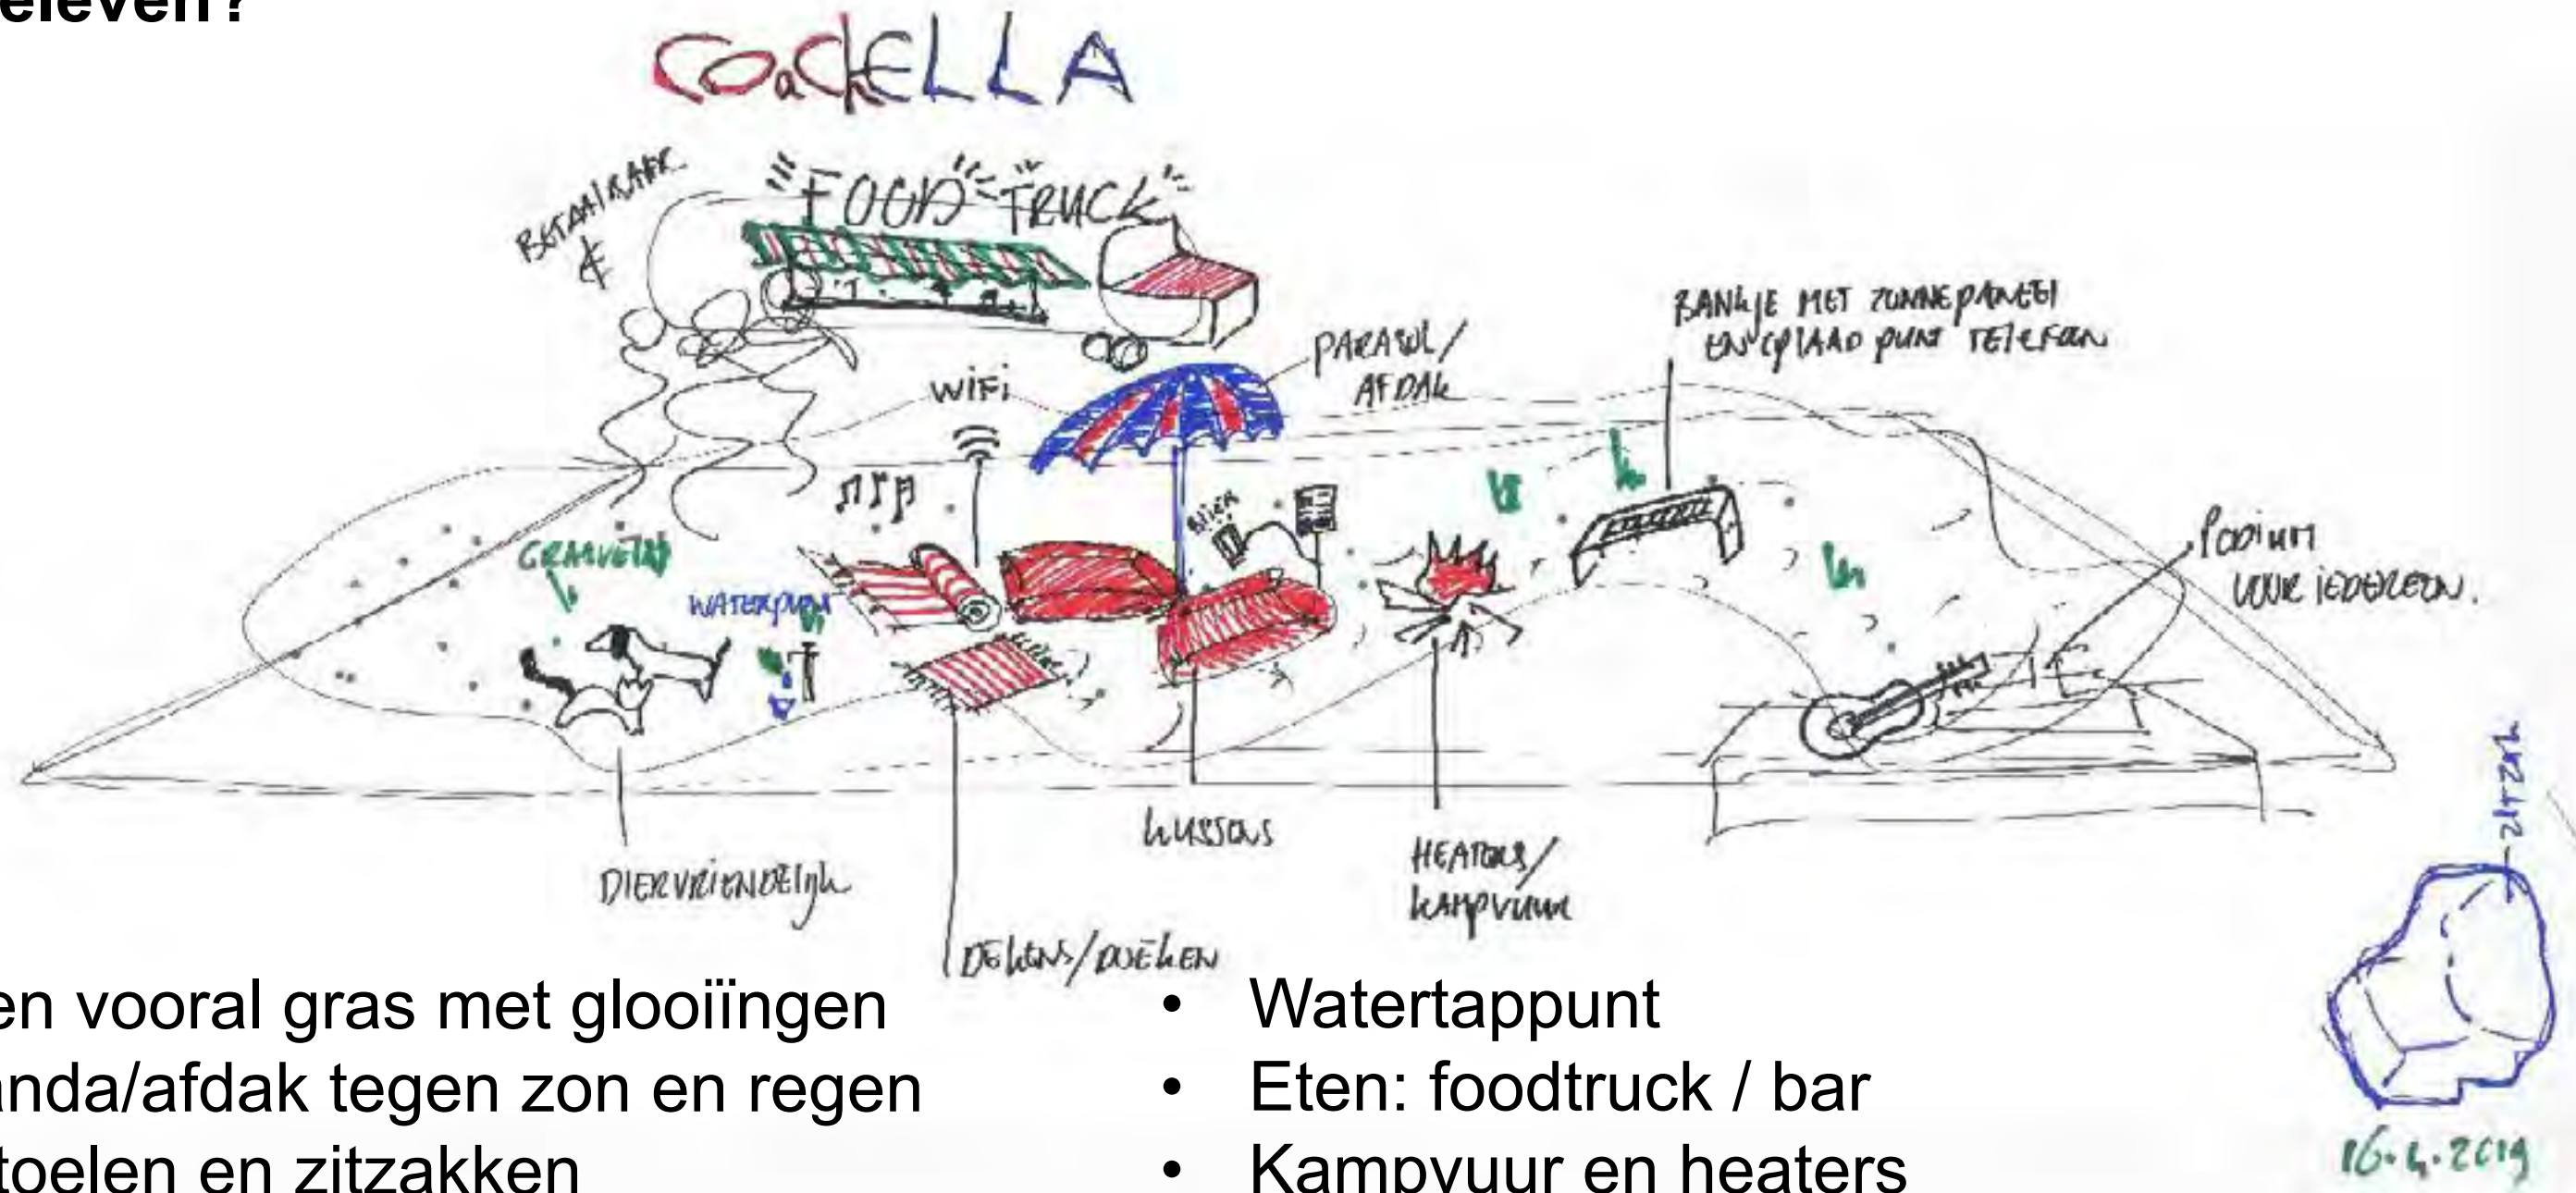 eleven?
COaChELLA
BETAALBAAR
€
FOOD TRUCK
WiFi
PARASOL/
AFDAK
BANKJE MET ZONNEPANEEl
EN OPLAAD PUNT TElEFOON
BIER
GRASVELD
WATERPUNT
Podium
VOOR iEDEREEN.
ZITZAK
KUSSENS
HEATERS/
KAMPVUUR
DIERVRIENDElijk
DEKENS/DOEKEN
en vooral gras met glooiïngen
anda/afdak tegen zon en regen
toelen en zitzakken
• Watertappunt
• Eten: foodtruck / bar
• Kampvuur en heaters
16.4.2019